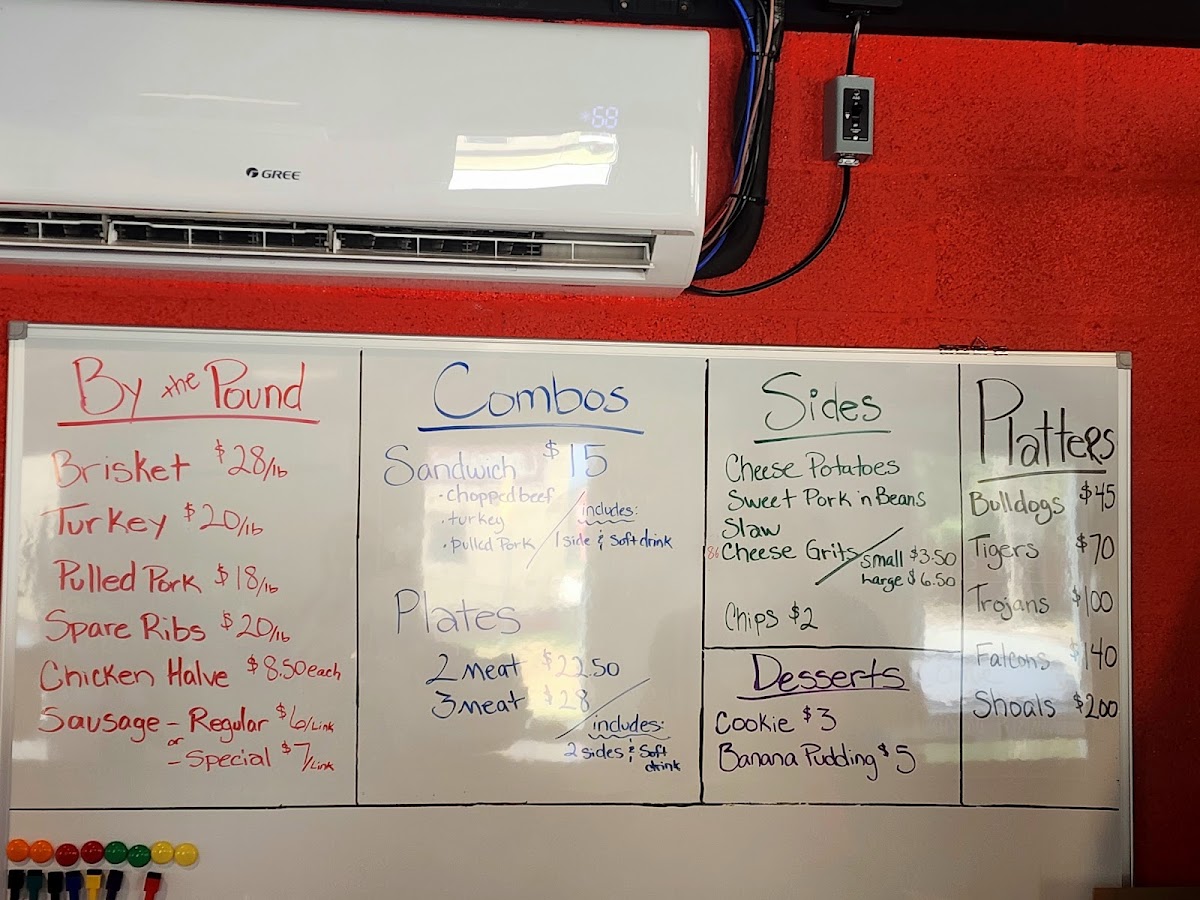 68
GREE
By the Pound
Brisket $28/lb
Turkey $20/lb
Pulled Pork $18/lb
Spare Ribs $20/lb
Chicken Halve $8.50 each
Sausage - Regular $6/Link
or
- Special $7/Link
Combos
Sandwich $15
· chopped beef
· turkey
· pulled Pork
includes:
1 side & Soft drink
Plates
2 meat $22.50
3 meat $28
includes:
2 sides & Soft
drink
Sides
Cheese Potatoes
Sweet Pork 'n Beans
Slaw
86 Cheese Grits
Small $3.50
Large $6.50
Chips $2
Desserts
Cookie $3
Banana Pudding $5
Platters
Bulldogs $45
Tigers $70
Trojans $100
Falcons $140
Shoals $200